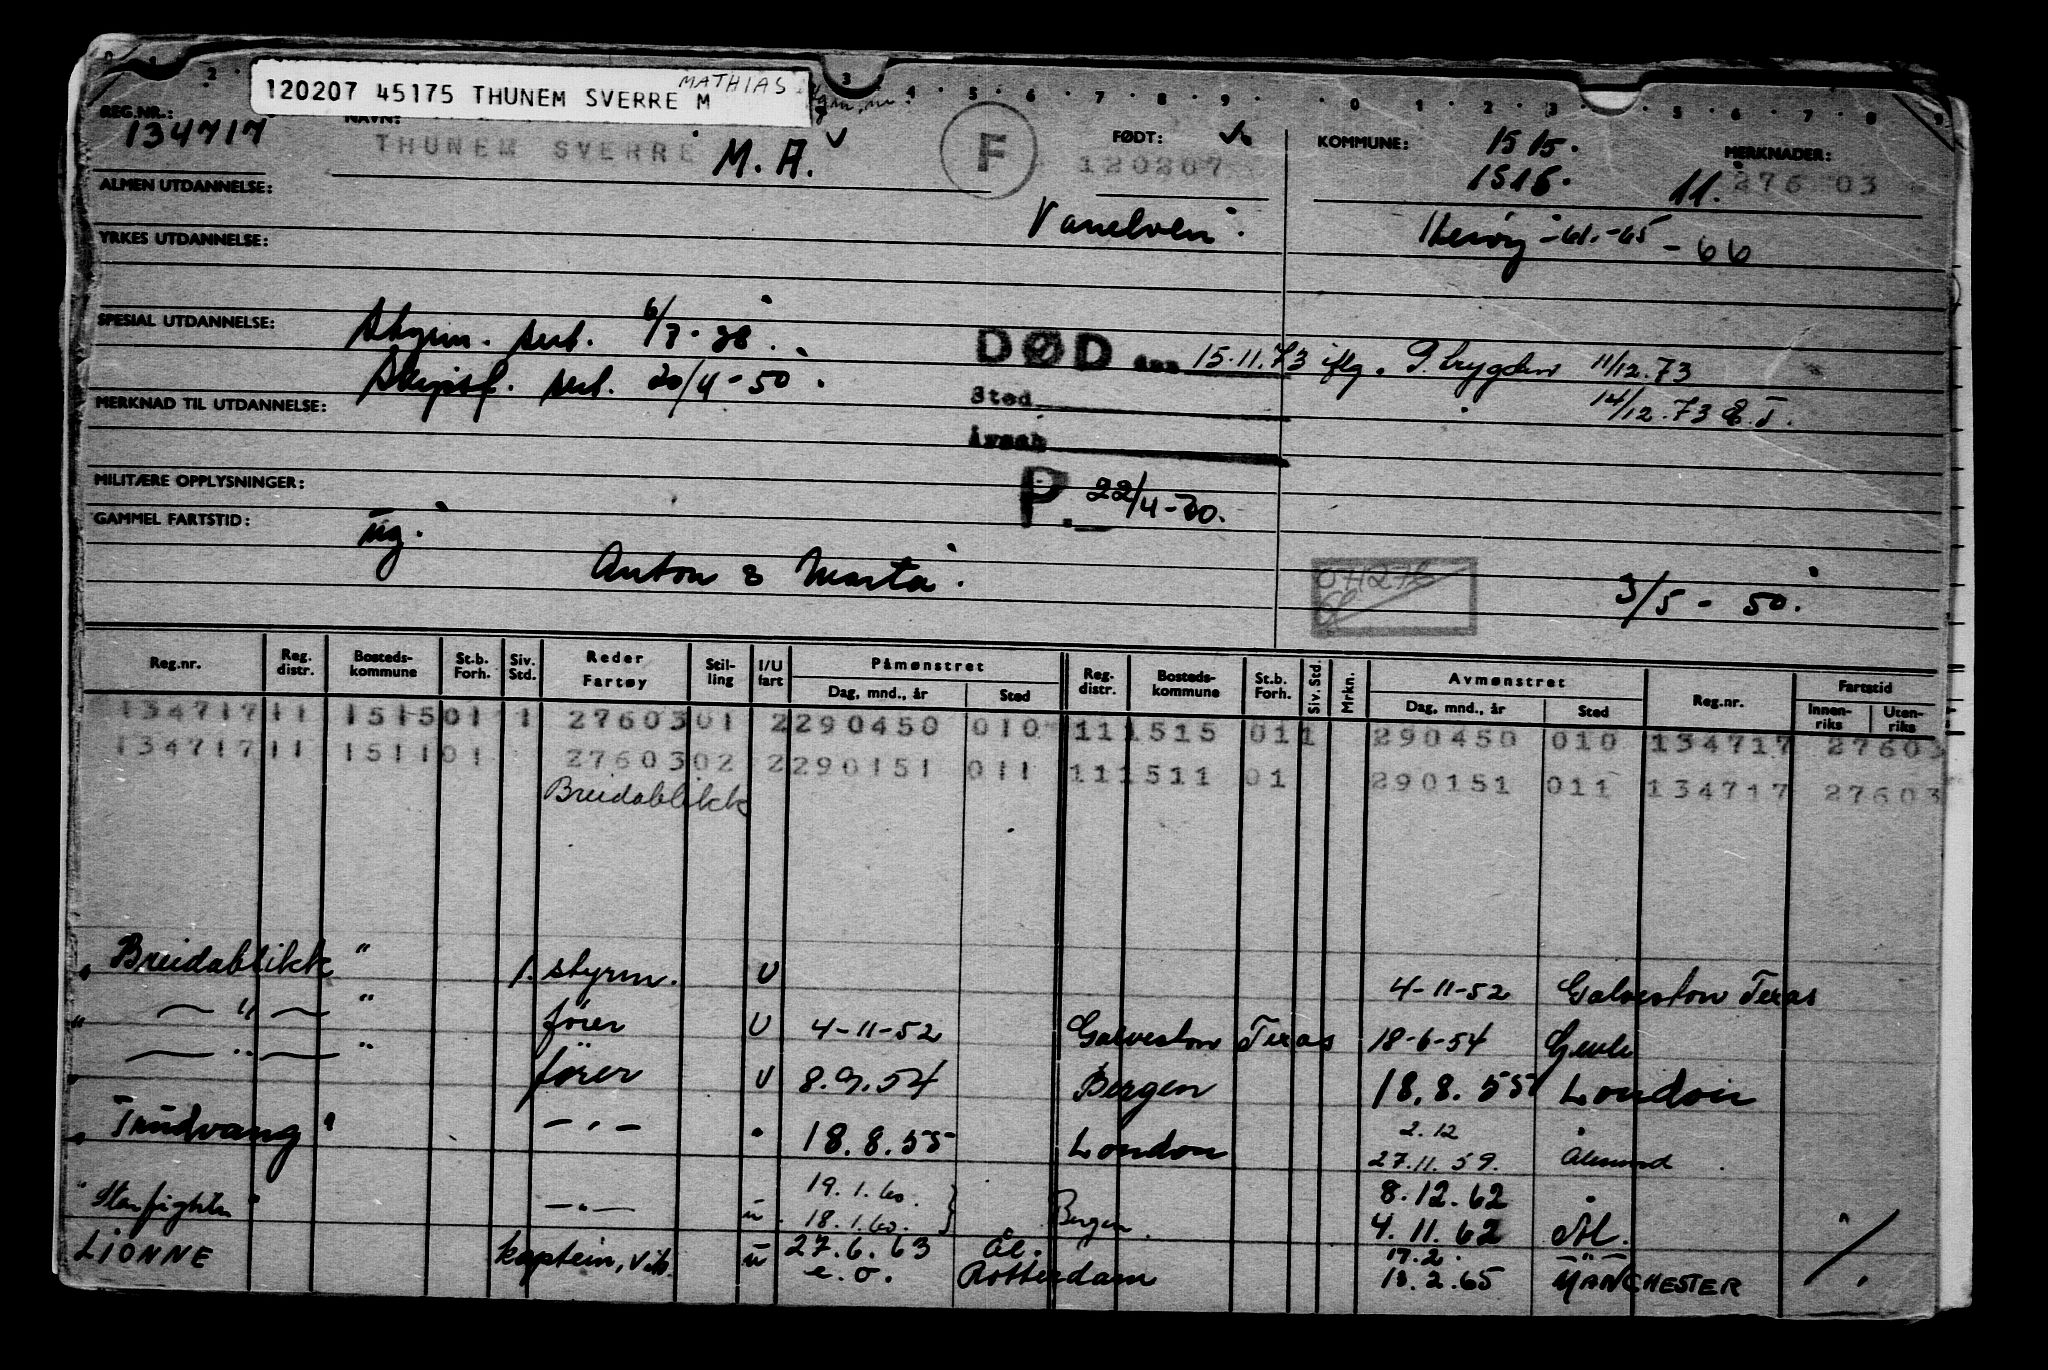 120207 45175 THUNEM SVERRE M
MATHIAS
REG.NR.: 134717
NAVN: THUNEM SVERRE M. A.
F
FØDT: 120207
KOMMUNE: 1515.
1516.
MERKNADER:
11. 276 03
ALMEN UTDANNELSE:
Vanelven.
Herøy -61.-65 - 66
YRKES UTDANNELSE:
SPESIAL UTDANNELSE:
Styrm. sert. 6/7-38.
Skipsf. sert. 20/4-50.
DØD den 15.11.73 iflg. P.trygden 11/12.73
14/12.73
Sted
Årsak
MERKNAD TIL UTDANNELSE:
MILITÆRE OPPLYSNINGER:
P. 22/4-70.
GAMMEL FARTSTID:
ug.
Anton & Marta.
3/5 - 50.
Reg.nr. Reg. distr. Bosteds-kommune St.b. Forh. Siv. Std. Reder Fartøy Stil-ling I/U fart Påmønstret Dag, mnd., år Sted Reg. distr. Bosteds-kommune St.b. Forh. Siv. Std. Mrkn. Avmønstret Dag, mnd., år Sted Reg.nr. Fartstid Innen-riks Uten-riks
134717 11 1515 01 1 27603 01 2 290450 010 11 1515 01 1 290450 010 134717 27603
134717 11 1511 01 27603 02 2 290151 011 11 1511 01 290151 011 134717 27603
Breidablikk
"Breidablikk" 1. styrm. U 4-11-52 Galveston Texas
" — " — " fører U 4-11-52 Galveston Texas 18-6-54 Gevle
" — " — " fører U 8.9.54 Bergen 18.8.55 London
"Trudvang" — " — " 18.8.55 London 2.12 27.11.59. Ålesund
"Starfighter" — " — u 19.1.60. 18.1.60. } Bergen. 8.12.62 4.11.62 Ål.
LIONNE kaptein, u 27.6.63 Ål. 17.2. — " —
e.o. Rotterdam 18.2.65 MANCHESTER